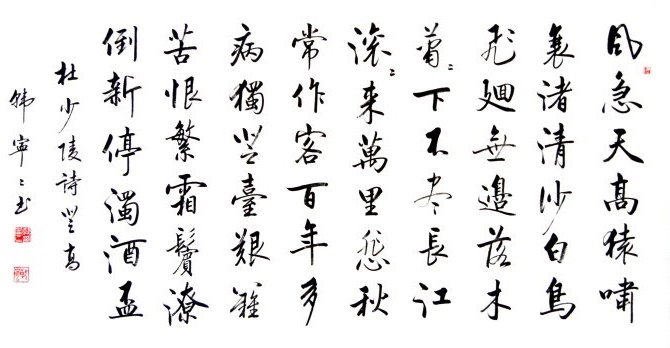 风急天高猿嘯
哀渚清沙白鳥
飛廻無邊落木
蕭〻下不尽長江
滚〻来萬里悲秋
常作客百年多
病獨登臺艱難
苦恨繁霜鬢潦
倒新停濁酒盃
杜少陵詩登高
韩寧〻书